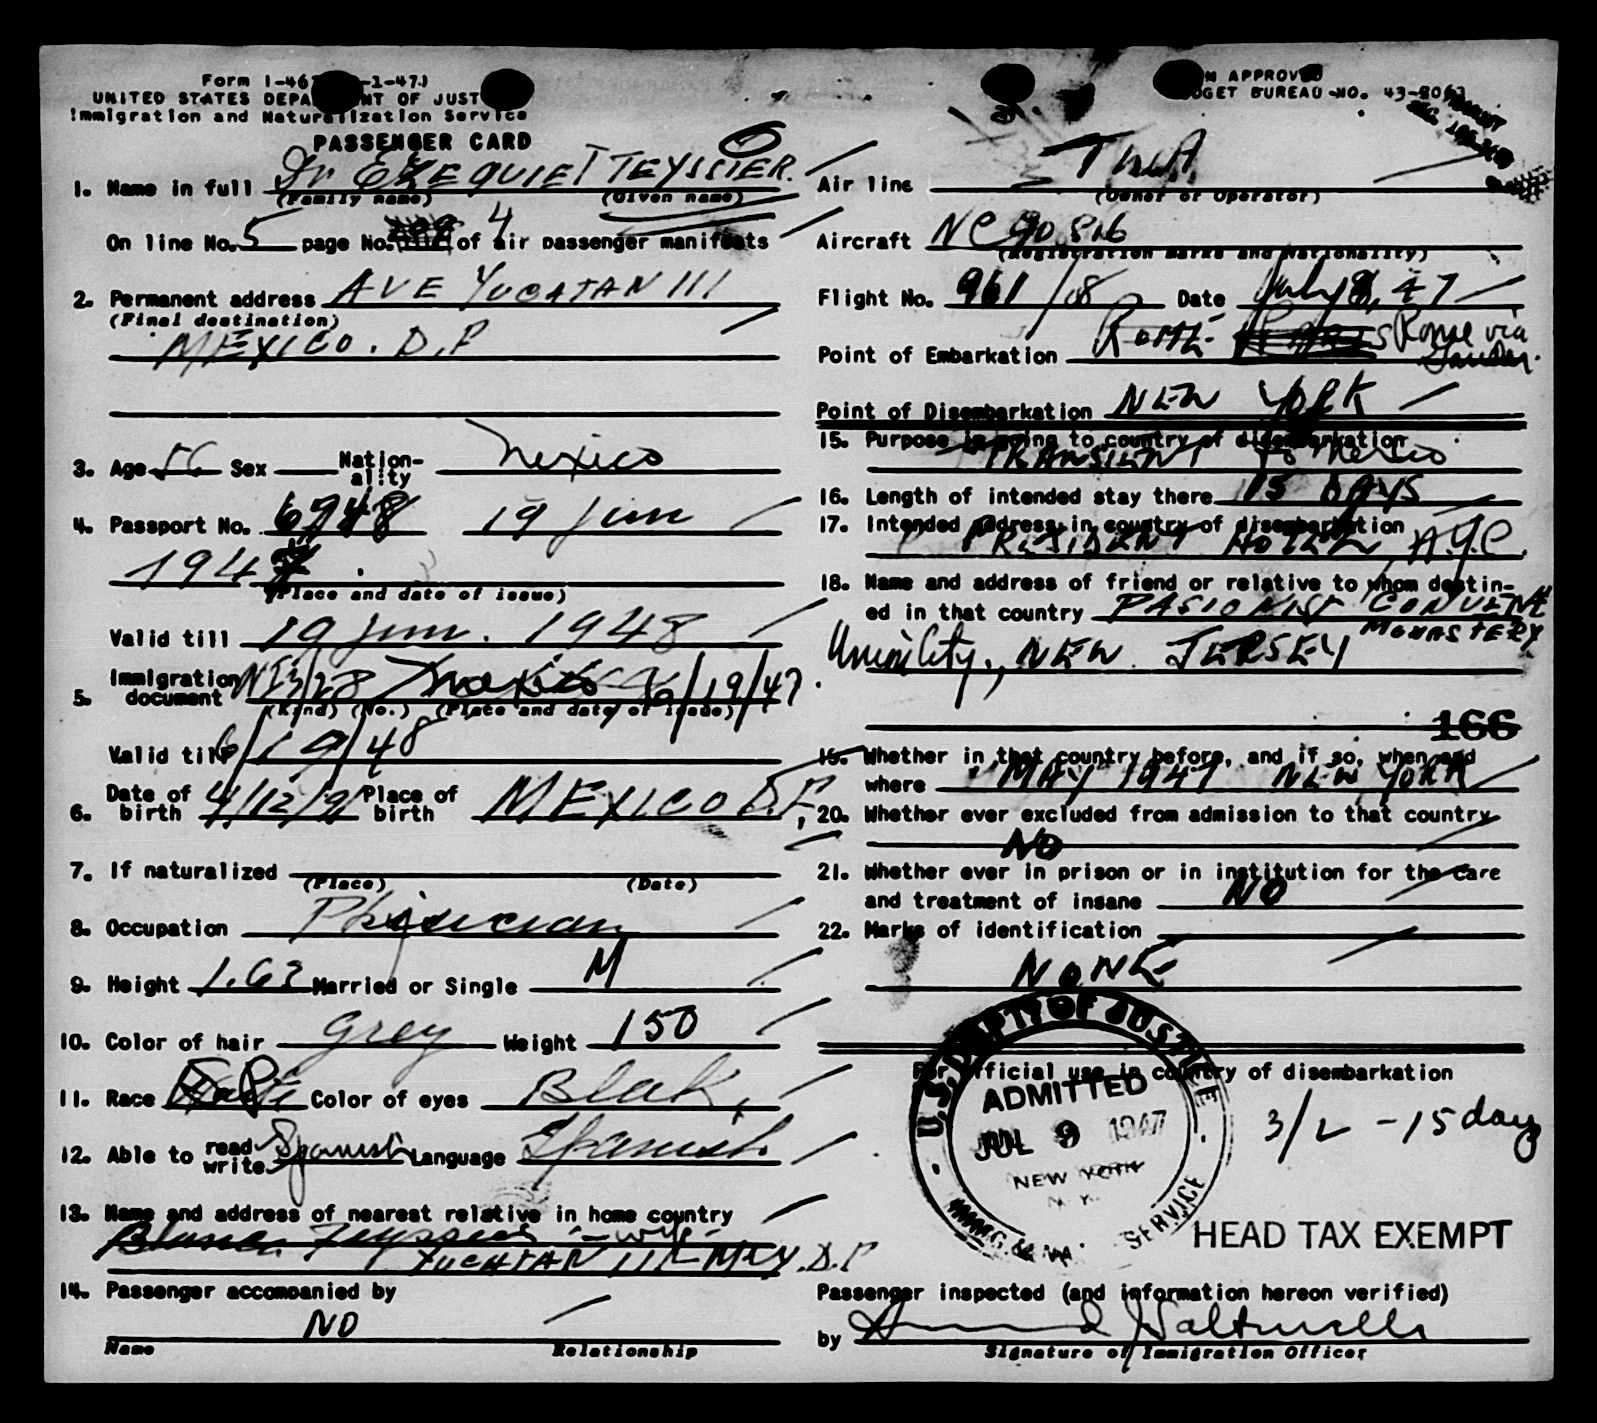 Form I-46 -1-47)
UNITED STATES DEPA NT OF JUST
Immigration and Naturalization Service
PASSENGER CARD
1. Name in full Dr EZEQUIEL TEYSSIER.
(Family name) (Given name)
On line No. 5 page No. 4 of air passenger manifests
2. Permanent address AVE YUCATAN 111
(Final destination)
MEXICO. D.F
3. Age 56 Sex Nation-ality Mexico
4. Passport No. 6748 19 Jun
1947
(Place and date of issue)
Valid till 19 Jun. 1948
5. Immigration document Mexico 6/19/47
(Kind) (No.) (Place and date of issue)
Valid till 6/19/48
6. Date of birth 4/12/91 Place of birth MEXICO D.F,
7. If naturalized
(Place) (Date)
8. Occupation Physician
9. Height 1.62 Married or Single M
10. Color of hair Grey Weight 150
11. Race Color of eyes Black,
12. Able to read write Spanish Language Spanish
13. Name and address of nearest relative in home country
Blanca Teyssier - wife -
YUCATAN 111 - MEX. D.F
14. Passenger accompanied by
NO
Name Relationship
M APPROVED
DGET BUREAU NO. 43-R063
Air line TWA
(Owner or Operator)
Aircraft NC 90816
(Registration marks and Nationality)
Flight No. 961/08 Date July 8, 47
Point of Embarkation ROME Rome via
Point of Disembarkation NEW YORK
15. Purpose in going to country of disembarkation
TRANSIENT to Mexico
16. Length of intended stay there 15 DAYS
17. Intended address in country of disembarkation
PRESIDENT HOTEL N.Y.C.
18. Name and address of friend or relative to whom destin-
ed in that country PASIONIST CONVENT
MONASTERY
Union City, NEW JERSEY
166
19. Whether in that country before, and if so, when and
where MAY 1947 NEW YORK
20. Whether ever excluded from admission to that country
NO
21. Whether ever in prison or in institution for the care
and treatment of insane NO
22. Marks of identification
NONE
For official use in country of disembarkation
U.S. DEPT. OF JUSTICE
ADMITTED
JUL 9 1947
NEW YORK
N.Y.
IMMIG. & NAT. SERVICE
3/2 - 15 days
HEAD TAX EXEMPT
Passenger inspected (and information hereon verified)
by
Signature of Immigration Officer